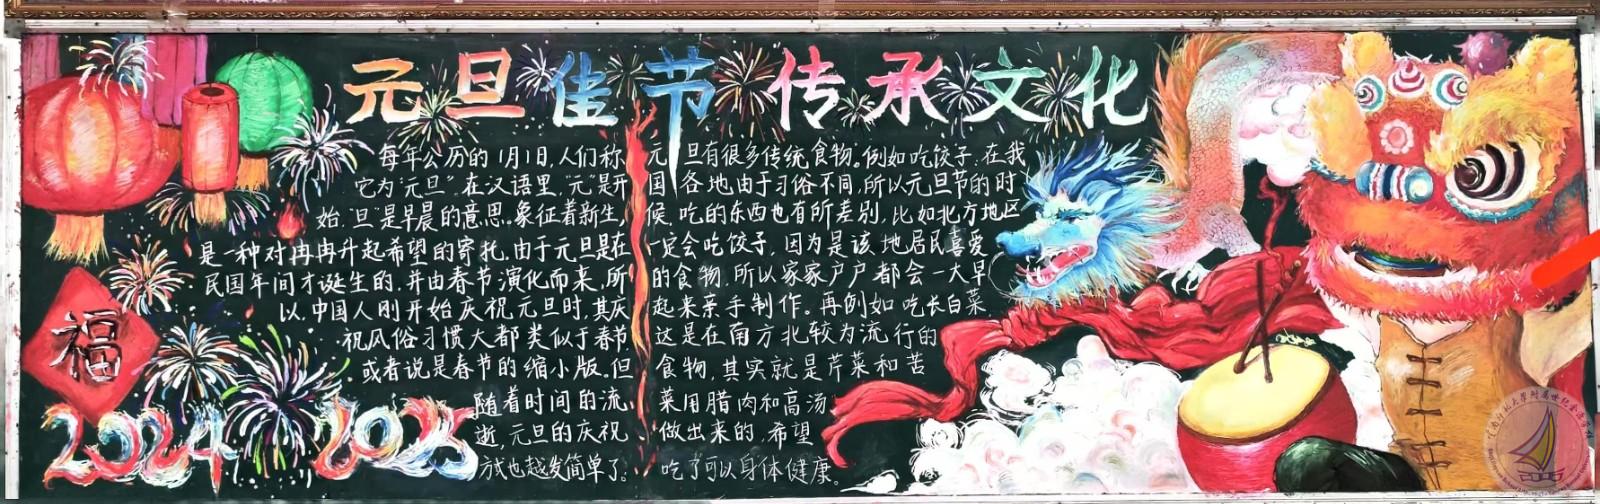 元旦佳节 传承文化
每年公历的1月1日,人们称
它为"元旦".在汉语里,"元"是开
始,"旦"是早晨的意思。象征着新生,
是一种对冉冉升起希望的寄托.由于元旦是在
民国年间才诞生的,并由春节演化而来,所
以,中国人刚开始庆祝元旦时,其庆
祝风俗习惯大都类似于春节,
或者说是春节的缩小版。但
随着时间的流,
逝,元旦的庆祝
方式也越发简单了。
元旦有很多传统食物。例如吃饺子.在我
国各地由于习俗不同,所以元旦节的时
候,吃的东西也有所差别,比如北方地区
一定会吃饺子,因为是该地居民喜爱
的食物,所以家家户户都会一大早
起来亲手制作。再例如吃长白菜
这是在南方北较为流行的
食物,其实就是芹菜和苦
菜用腊肉和高汤
做出来的,希望
吃了可以身体健康。
福
2024 2025